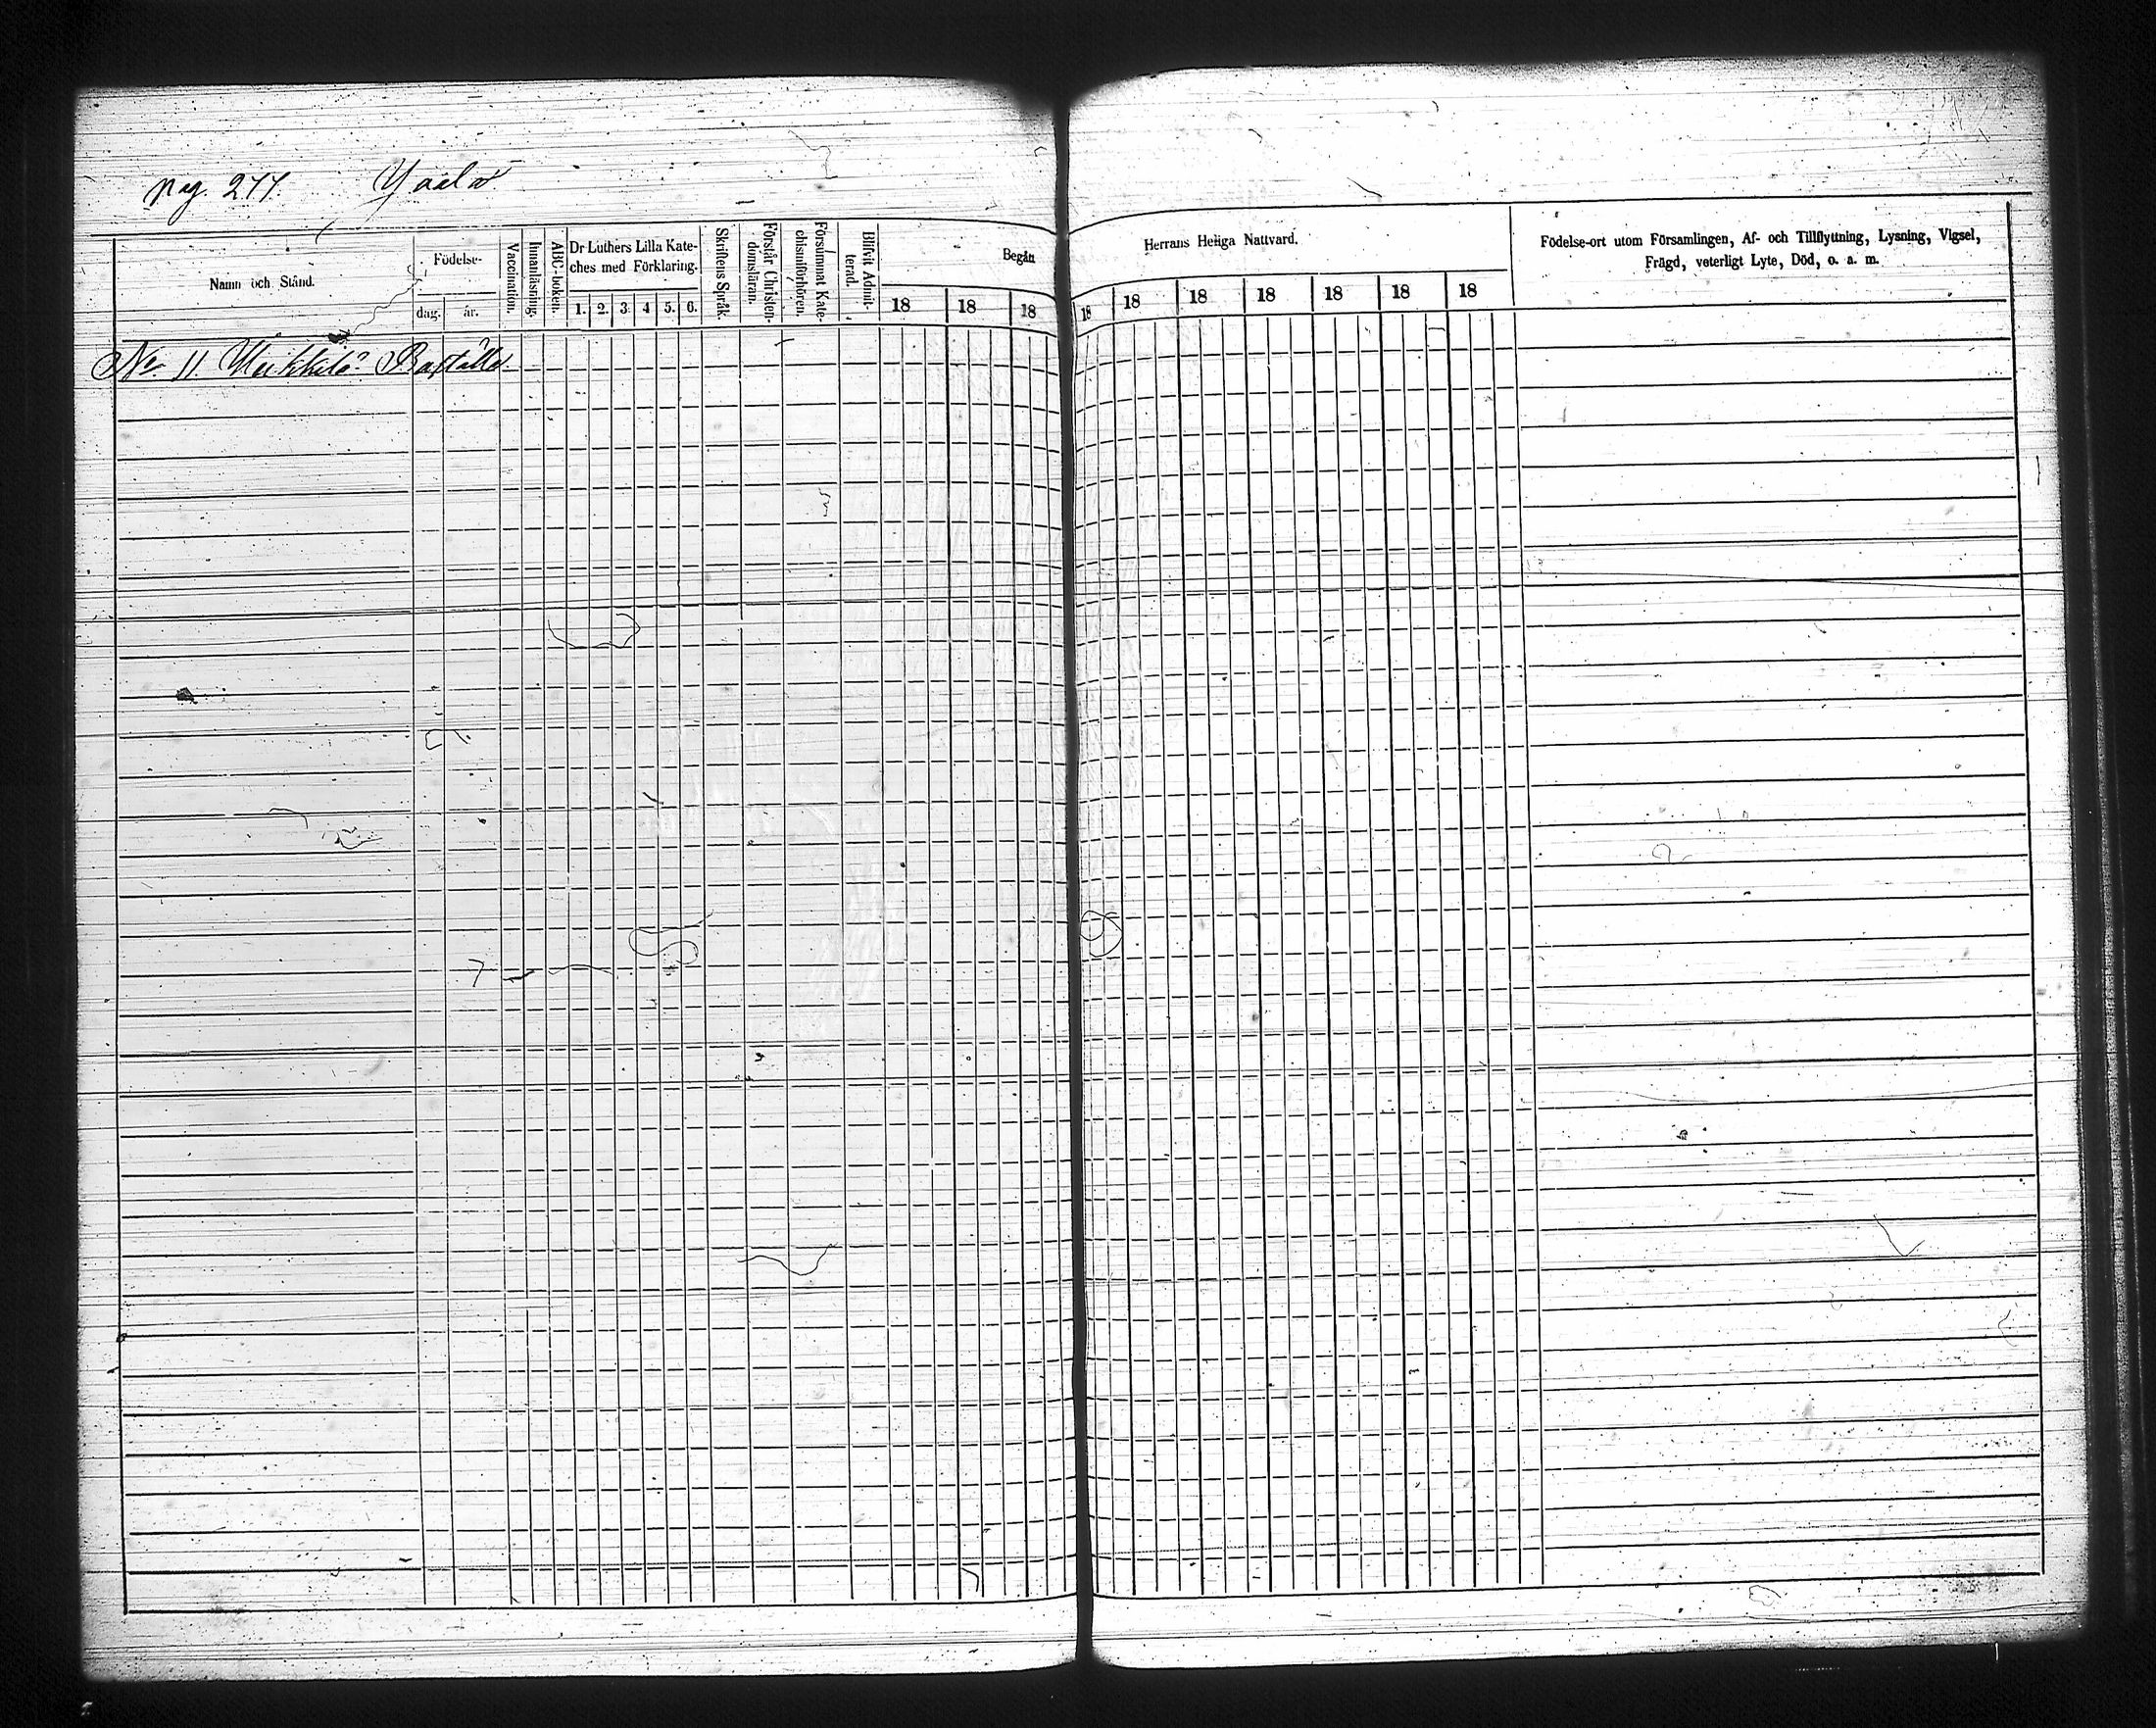 pag. 277. Yaala
Namn och Stånd.
Födelse-
dag. år.
Vaccination.
Innanläsning.
ABC-boken.
Dr Luthers Lilla Kate-
ches med Förklaring.
1. 2. 3. 4 5. 6.
Skriftens Språk.
Förstår Christen-
domsläran.
Försummat Kate-
chismiförhören.
Blifvit Admit-
terad.
Begått
18 18 18
Herrans Heliga Nattvard.
18 18 18 18 18 18 18
Födelse-ort utom Församlingen, Af- och Tillflyttning, Lysning, Vigsel,
Frägd, veterligt Lyte, Död, o. a. m.
No 11